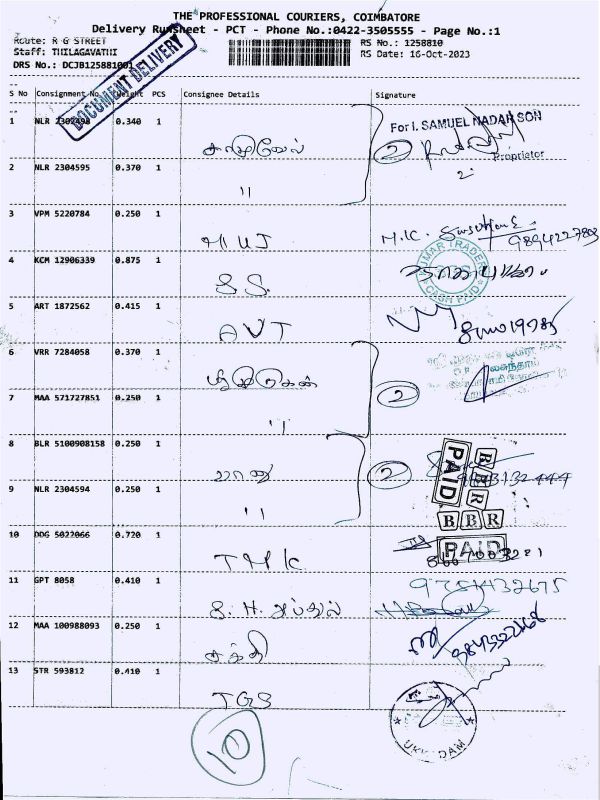 THE PROFESSIONAL COURIERS, COIMBATORE
Delivery Runsheet - PCT - Phone No.:0422-3505555 - Page No.:1
Route: R G STREET
RS No.: 1258810
Staff: THILAGAVATHI
RS Date: 16-Oct-2023
DRS No.: DCJB125881001
DOCUMENT DELIVERY
S No Consignment No Weight PCS Consignee Details Signature
1 NLR 2302498 0.340 1
For I. SAMUEL NADAR SON
Proprietor
2 NLR 2304595 0.370 1
"
2
3 VPM 5220784 0.250 1
M.K.
4 KCM 12906339 0.875 1
S.S.
KUMAR TRADERS
CASH PAID
5 ART 1872562 0.415 1
AVT
6 VRR 7284058 0.370 1
முருகன்
7 MAA 571727851 0.250 1
"
2
8 BLR 5100908158 0.250 1
பானு
2
PAID
BBR
9 NLR 2304594 0.250 1
"
BBR
10 DDG 5022066 0.720 1
TMK
PAID
11 GPT 8058 0.410 1
S.H. அப்துல்
9751432675
12 MAA 100988093 0.250 1
சக்தி
13 STR 593812 0.410 1
TGS
10